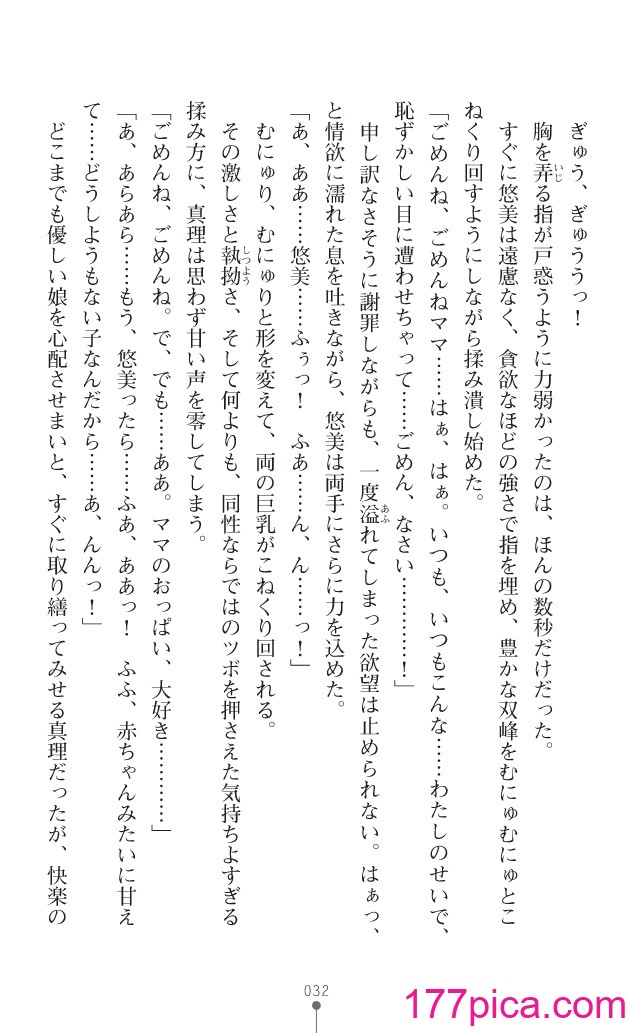 ぎゅう、ぎゅううっ！
胸を弄る指が戸惑うように力弱かったのは、ほんの数秒だけだった。
すぐに悠美は遠慮なく、貪欲なほどの強さで指を埋め、豊かな双峰をむにゅむにゅとこ
ねくり回すようにしながら揉み潰し始めた。
「ごめんね、ごめんねママ……はぁ、はぁ。いつも、いつもこんな……わたしのせいで、
恥ずかしい目に遭わせちゃって……ごめん、なさい…………！」
申し訳なさそうに謝罪しながらも、一度溢れてしまった欲望は止められない。はぁっ、
と情欲に濡れた息を吐きながら、悠美は両手にさらに力を込めた。
「あ、ああ……悠美……ふぅっ！　ふあ……ん、ん……っ！」
むにゅり、むにゅりと形を変えて、両の巨乳がこねくり回される。
その激しさと執拗さ、そして何よりも、同性ならではのツボを押さえた気持ちよすぎる
揉み方に、真理は思わず甘い声を零してしまう。
「ごめんね、ごめんね。で、でも……ああ。ママのおっぱい、大好き…………」
「あ、あらあら……もう、悠美ったら……ふぁ、ああっ！　ふふ、赤ちゃんみたいに甘え
て……どうしようもない子なんだから……あ、んんっ！」
どこまでも優しい娘を心配させまいと、すぐに取り繕ってみせる真理だったが、快楽の
いじ
あふ
しつよう
032
177pica.com